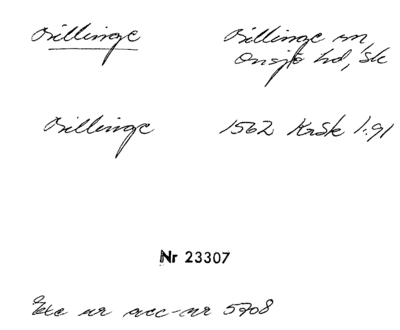 Billinge Billinge sn
Onsjö hd, Sk
Billinge 1562 KrSk 1:91
Nr 23307
Exc ur acc-nr 5708